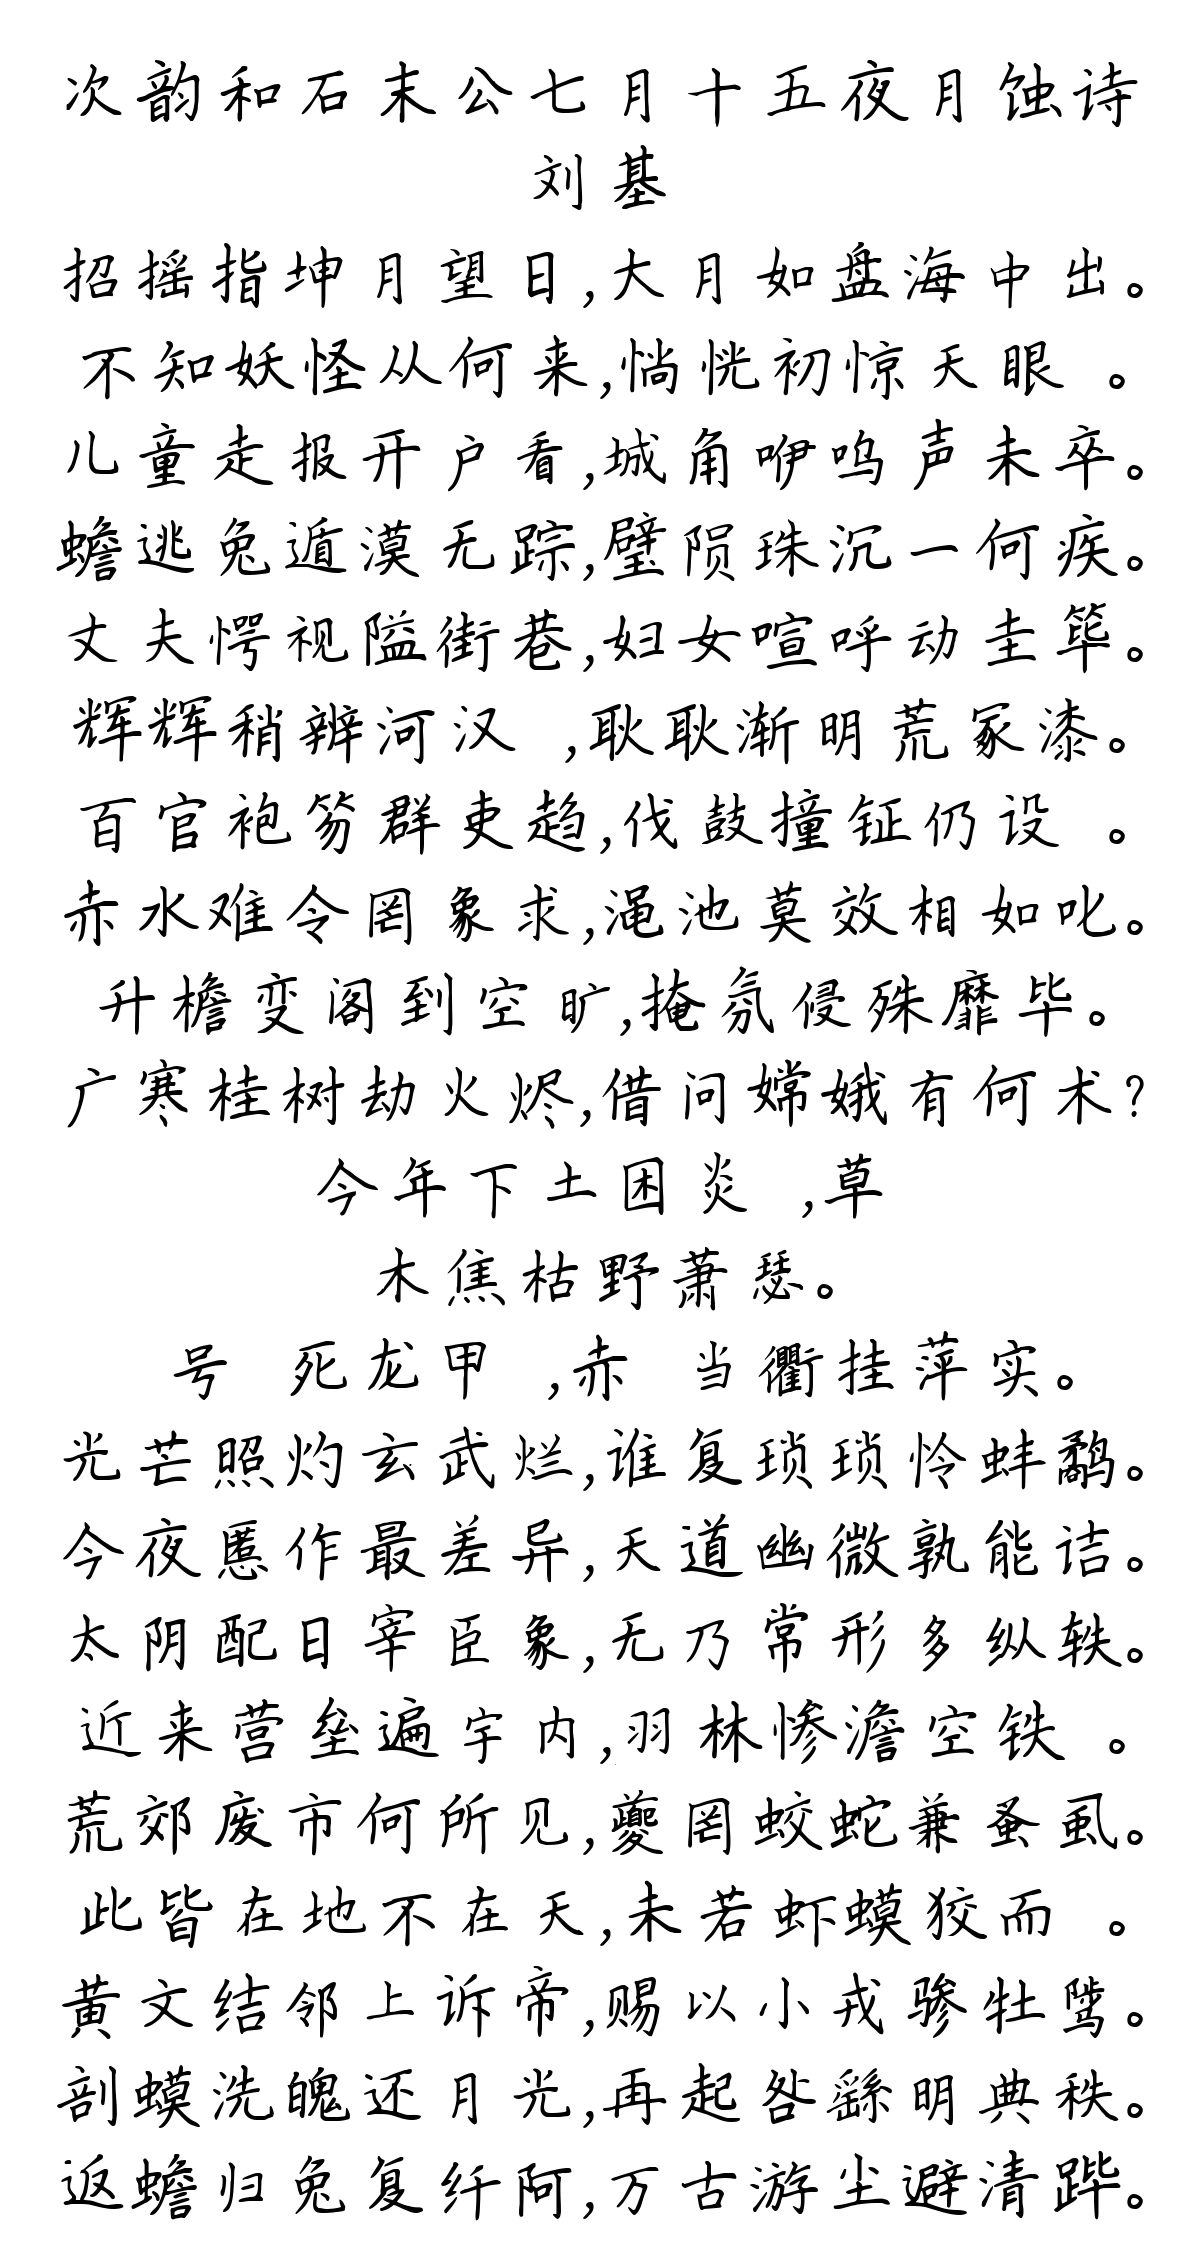 次韵和石末公七月十五夜月蚀诗
刘基
招摇指坤月望日,大月如盘海中出。
不知妖怪从何来,惝恍初惊天眼 。
儿童走报开户看,城角咿呜声未卒。
蟾逃兔遁漠无踪,璧陨珠沉一何疾。
丈夫愕视隘街巷,妇女喧呼动圭筚。
辉辉稍辨河汉 ,耿耿渐明荒冢漆。
百官袍笏群吏趋,伐鼓撞钲仍设 。
赤水难令罔象求,渑池莫效相如叱。
升檐变阁到空旷,掩氛侵殊靡毕。
广寒桂树劫火烬,借问嫦娥有何术?
今年下土困炎 ,草
木焦枯野萧瑟。
号 死龙甲 ,赤 当衢挂萍实。
光芒照灼玄武烂,谁复琐琐怜蚌鹬。
今夜慝作最差异,天道幽微孰能诘。
太阴配日宰臣象,无乃常形多纵轶。
近来营垒遍宇内,羽林惨澹空铁 。
荒郊废市何所见,夔罔蛟蛇兼蚤虱。
此皆在地不在天,未若虾蟆狡而 。
黄文结邻上诉帝,赐以小戎骖牡骘。
剖蟆洗魄还月光,再起咎繇明典秩。
返蟾归兔复纤阿,万古游尘避清跸。